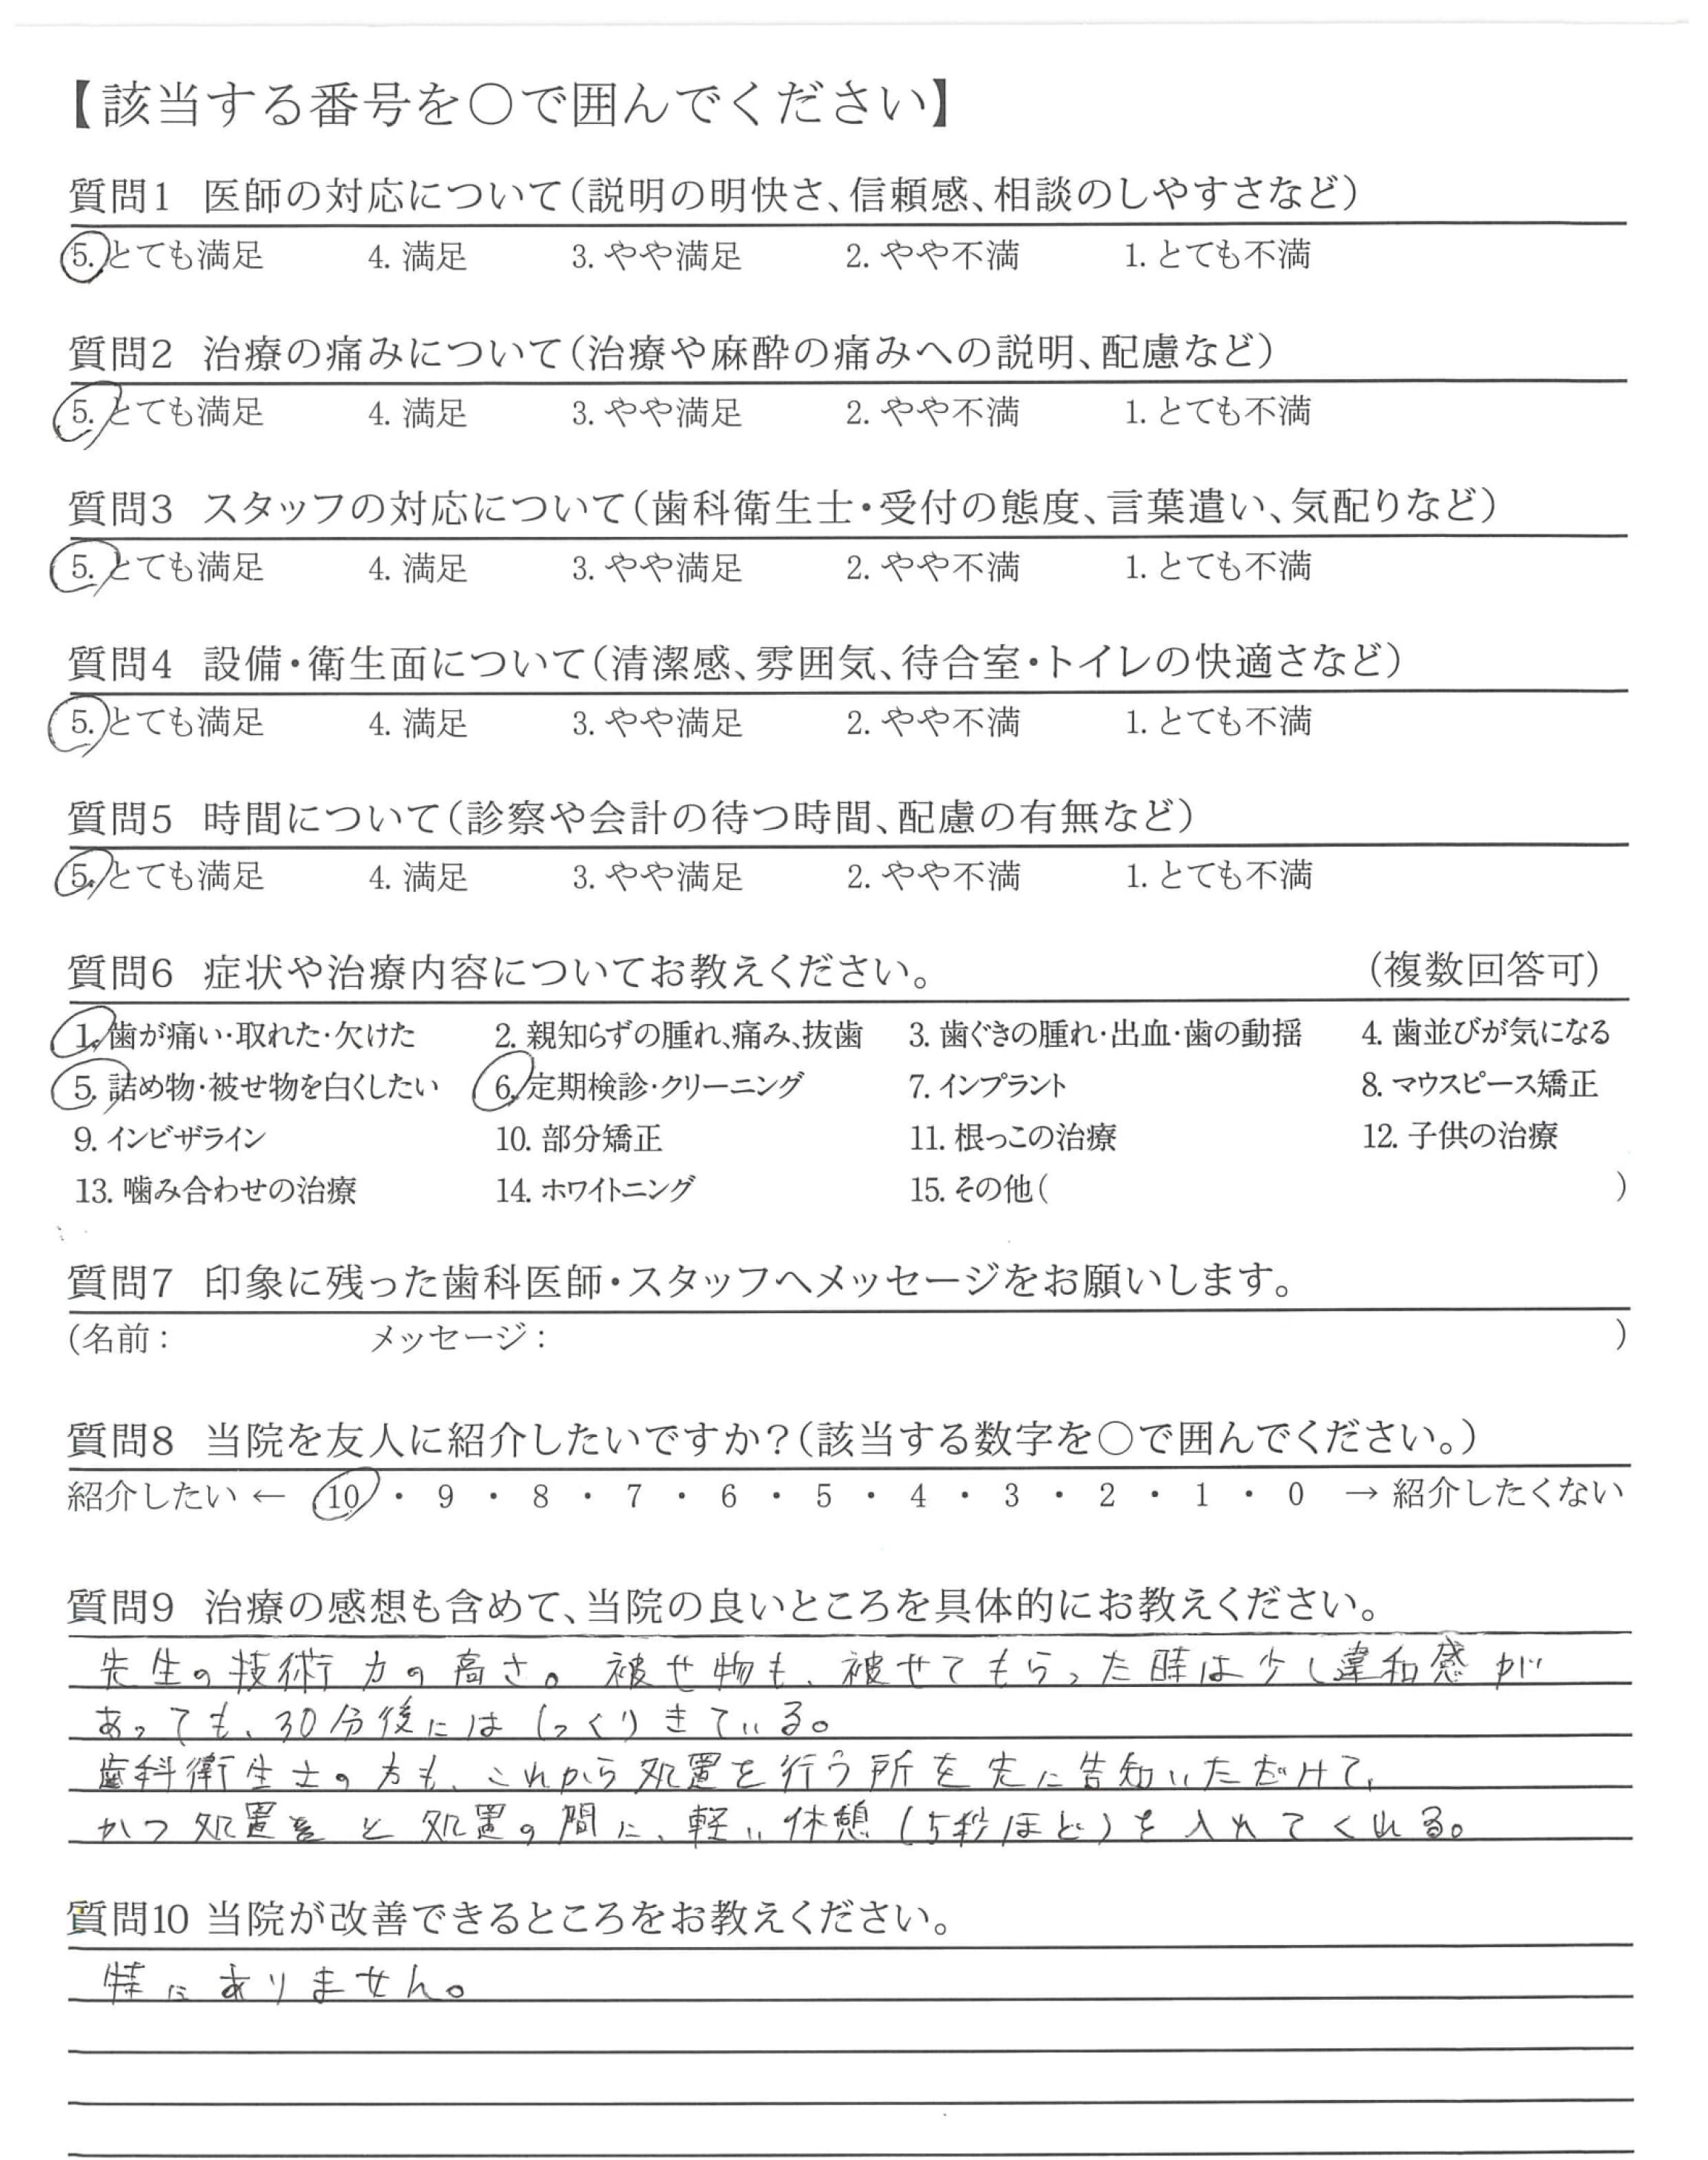 【該当する番号を〇で囲んでください】
質問1 医師の対応について(説明の明快さ、信頼感、相談のしやすさなど)
5. とても満足 4. 満足 3. やや満足 2. やや不満 1. とても不満
質問2 治療の痛みについて(治療や麻酔の痛みへの説明、配慮など)
5. とても満足 4. 満足 3. やや満足 2. やや不満 1. とても不満
質問3 スタッフの対応について(歯科衛生士・受付の態度、言葉遣い、気配りなど)
5. とても満足 4. 満足 3. やや満足 2. やや不満 1. とても不満
質問4 設備・衛生面について(清潔感、雰囲気、待合室・トイレの快適さなど)
5. とても満足 4. 満足 3. やや満足 2. やや不満 1. とても不満
質問5 時間について(診察や会計の待つ時間、配慮の有無など)
5. とても満足 4. 満足 3. やや満足 2. やや不満 1. とても不満
質問6 症状や治療内容についてお教えください。 (複数回答可)
1. 歯が痛い・取れた・欠けた 2. 親知らずの腫れ、痛み、抜歯 3. 歯ぐきの腫れ・出血・歯の動揺 4. 歯並びが気になる
5. 詰め物・被せ物を白くしたい 6. 定期検診・クリーニング 7. インプラント 8. マウスピース矯正
9. インビザライン 10. 部分矯正 11. 根っこの治療 12. 子供の治療
13. 噛み合わせの治療 14. ホワイトニング 15. その他( )
質問7 印象に残った歯科医師・スタッフへメッセージをお願いします。
(名前: メッセージ: )
質問8 当院を友人に紹介したいですか?(該当する数字を〇で囲んでください。)
紹介したい ← 10 ・ 9 ・ 8 ・ 7 ・ 6 ・ 5 ・ 4 ・ 3 ・ 2 ・ 1 ・ 0 → 紹介したくない
質問9 治療の感想も含めて、当院の良いところを具体的にお教えください。
先生の技術力の高さ。被せ物も、被せてもらった時は少し違和感が
あっても、30分後にはしっくりきている。
歯科衛生士の方も、これから処置を行う所を先に告知いただけて、
かつ処置と処置の間に、軽い休憩(5秒ほど)を入れてくれる。
質問10 当院が改善できるところをお教えください。
特にありません。